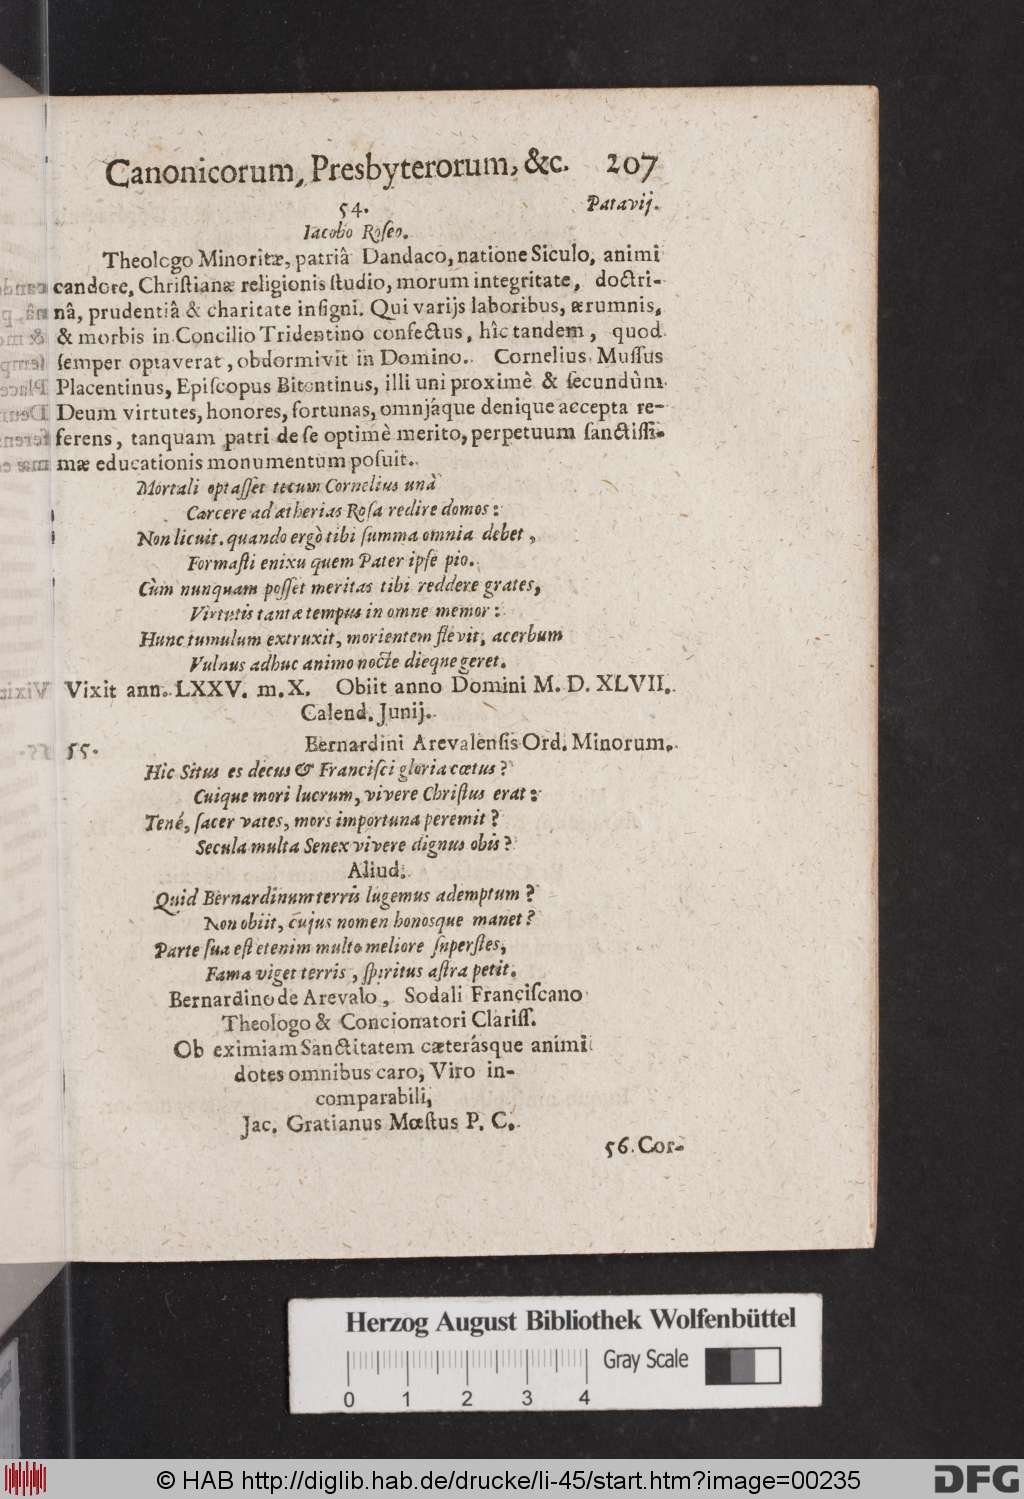 Canonicorum, Presbyterorum, &c. 207
54. Patavij.
Iacobo Roseo.
Theologo Minoritæ, patriâ Dandaco, natione Siculo, animi
candore, Chriſtianæ religionis ſtudio, morum integritate, doctri-
nâ, prudentiâ & charitate inſigni. Qui varijs laboribus, ærumnis,
& morbis in Concilio Tridentino confectus, hîc tandem, quod
ſemper optaverat, obdormivit in Domino. Cornelius Muſſus
Placentinus, Epiſcopus Bitontinus, illi uni proximè & ſecundùm
Deum virtutes, honores, fortunas, omnjáque denique accepta re-
ferens, tanquam patri de ſe optimè merito, perpetuum ſanctiſſi-
mæ educationis monumentum poſuit.
Mortali optaſſet tecum Cornelius unà
Carcere ad ætherias Roſa redire domos:
Non licuit. quando ergò tibi ſumma omnia debet,
Formaſti enixu quem Pater ipſe pio.
Cùm nunquam poſſet meritas tibi reddere grates,
Virtutis tantæ tempus in omne memor:
Hunc tumulum extruxit, morientem flevit, acerbum
Vulnus adhuc animo nocte dieque geret.
Vixit ann. LXXV. m. X. Obiit anno Domini M. D. XLVII.
Calend. Junij.
55. Bernardini Arevalenſis Ord. Minorum.
Hic Situs es decus & Franciſci gloria cœtus?
Cuique mori lucrum, vivere Chriſtus erat:
Tené, ſacer vates, mors importuna peremit?
Secula multa Senex vivere dignus obis?
Aliud.
Quid Bernardinum terris lugemus ademptum?
Non obiit, cujus nomen honosque manet?
Parte ſua eſt etenim multo meliore ſuperſtes,
Fama viget terris, ſpiritus aſtra petit.
Bernardino de Arevalo, Sodali Franciſcano
Theologo & Concionatori Clariſſ.
Ob eximiam Sanctitatem cæterásque animi
dotes omnibus caro, Viro in-
comparabili,
Jac. Gratianus Mœſtus P. C.
56. Cor-
Herzog August Bibliothek Wolfenbüttel
Gray Scale
0 1 2 3 4
© HAB http://diglib.hab.de/drucke/li-45/start.htm?image=00235
DFG